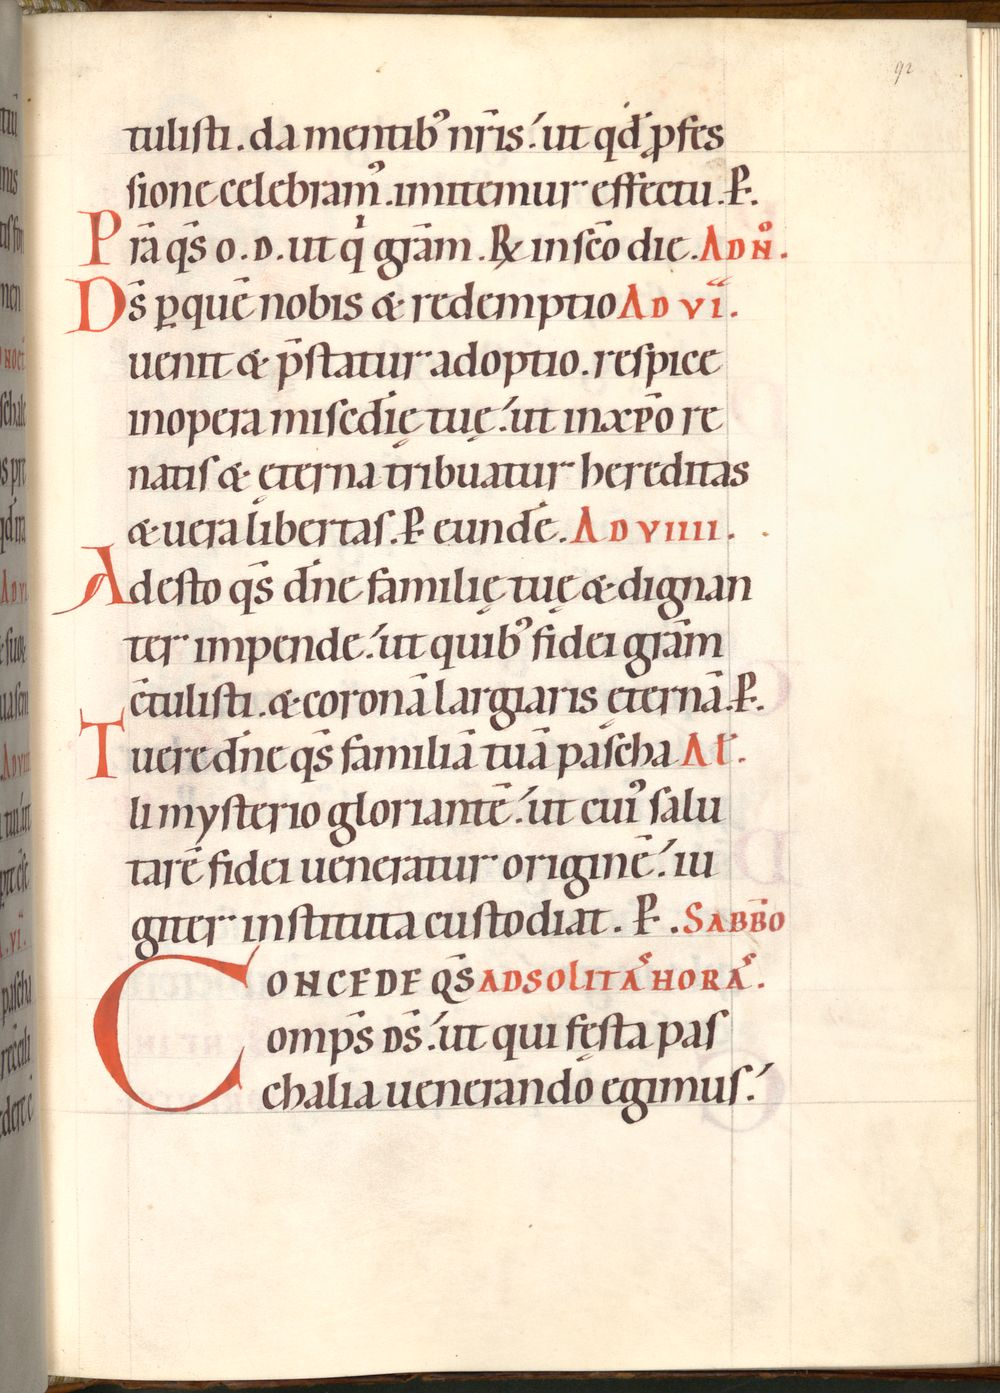 92
tulisti. da mentib⁹ nr̄is.ut qd̄ ꝓfes
sione celebram⁹.imitemur effectu.P.
Prā qs̄ o.D.ut q gr̄am.R inscō die.AD N̊.
Ds̄ p quē nobis & redemptio AD VI.
uenit & p̄statur adoptio.respice
inopera misedię tuę.ut inxp̄o re
natis & ęterna tribuatur hereditas
& uera libertas.P eundē. AD VIIII.
Adesto qs̄ dn̄e familię tuę & dignan
ter impende.ut quib⁹ fidei gr̄am
c̄tulisti.& coronā largiaris ęternā.P.
Tuere dn̄e qs̄ familiā tuā pascha AL.
li mysterio gloriantē.ut cui⁹ salu
tarē fidei ueneratur originē.iu
giter instituta custodiat. P. SABB̄O
CONCEDE QS̄ ADSOLITAS HORAS.
omps̄ DS̄.ut qui fęsta pas
chalia uenerando egimus.